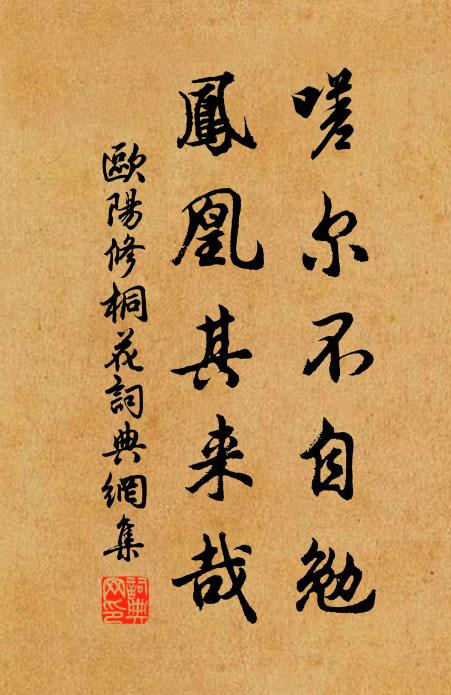 嗟尔不自勉
鳳凰其来哉
歐陽修桐花詞典網集
詞典網印